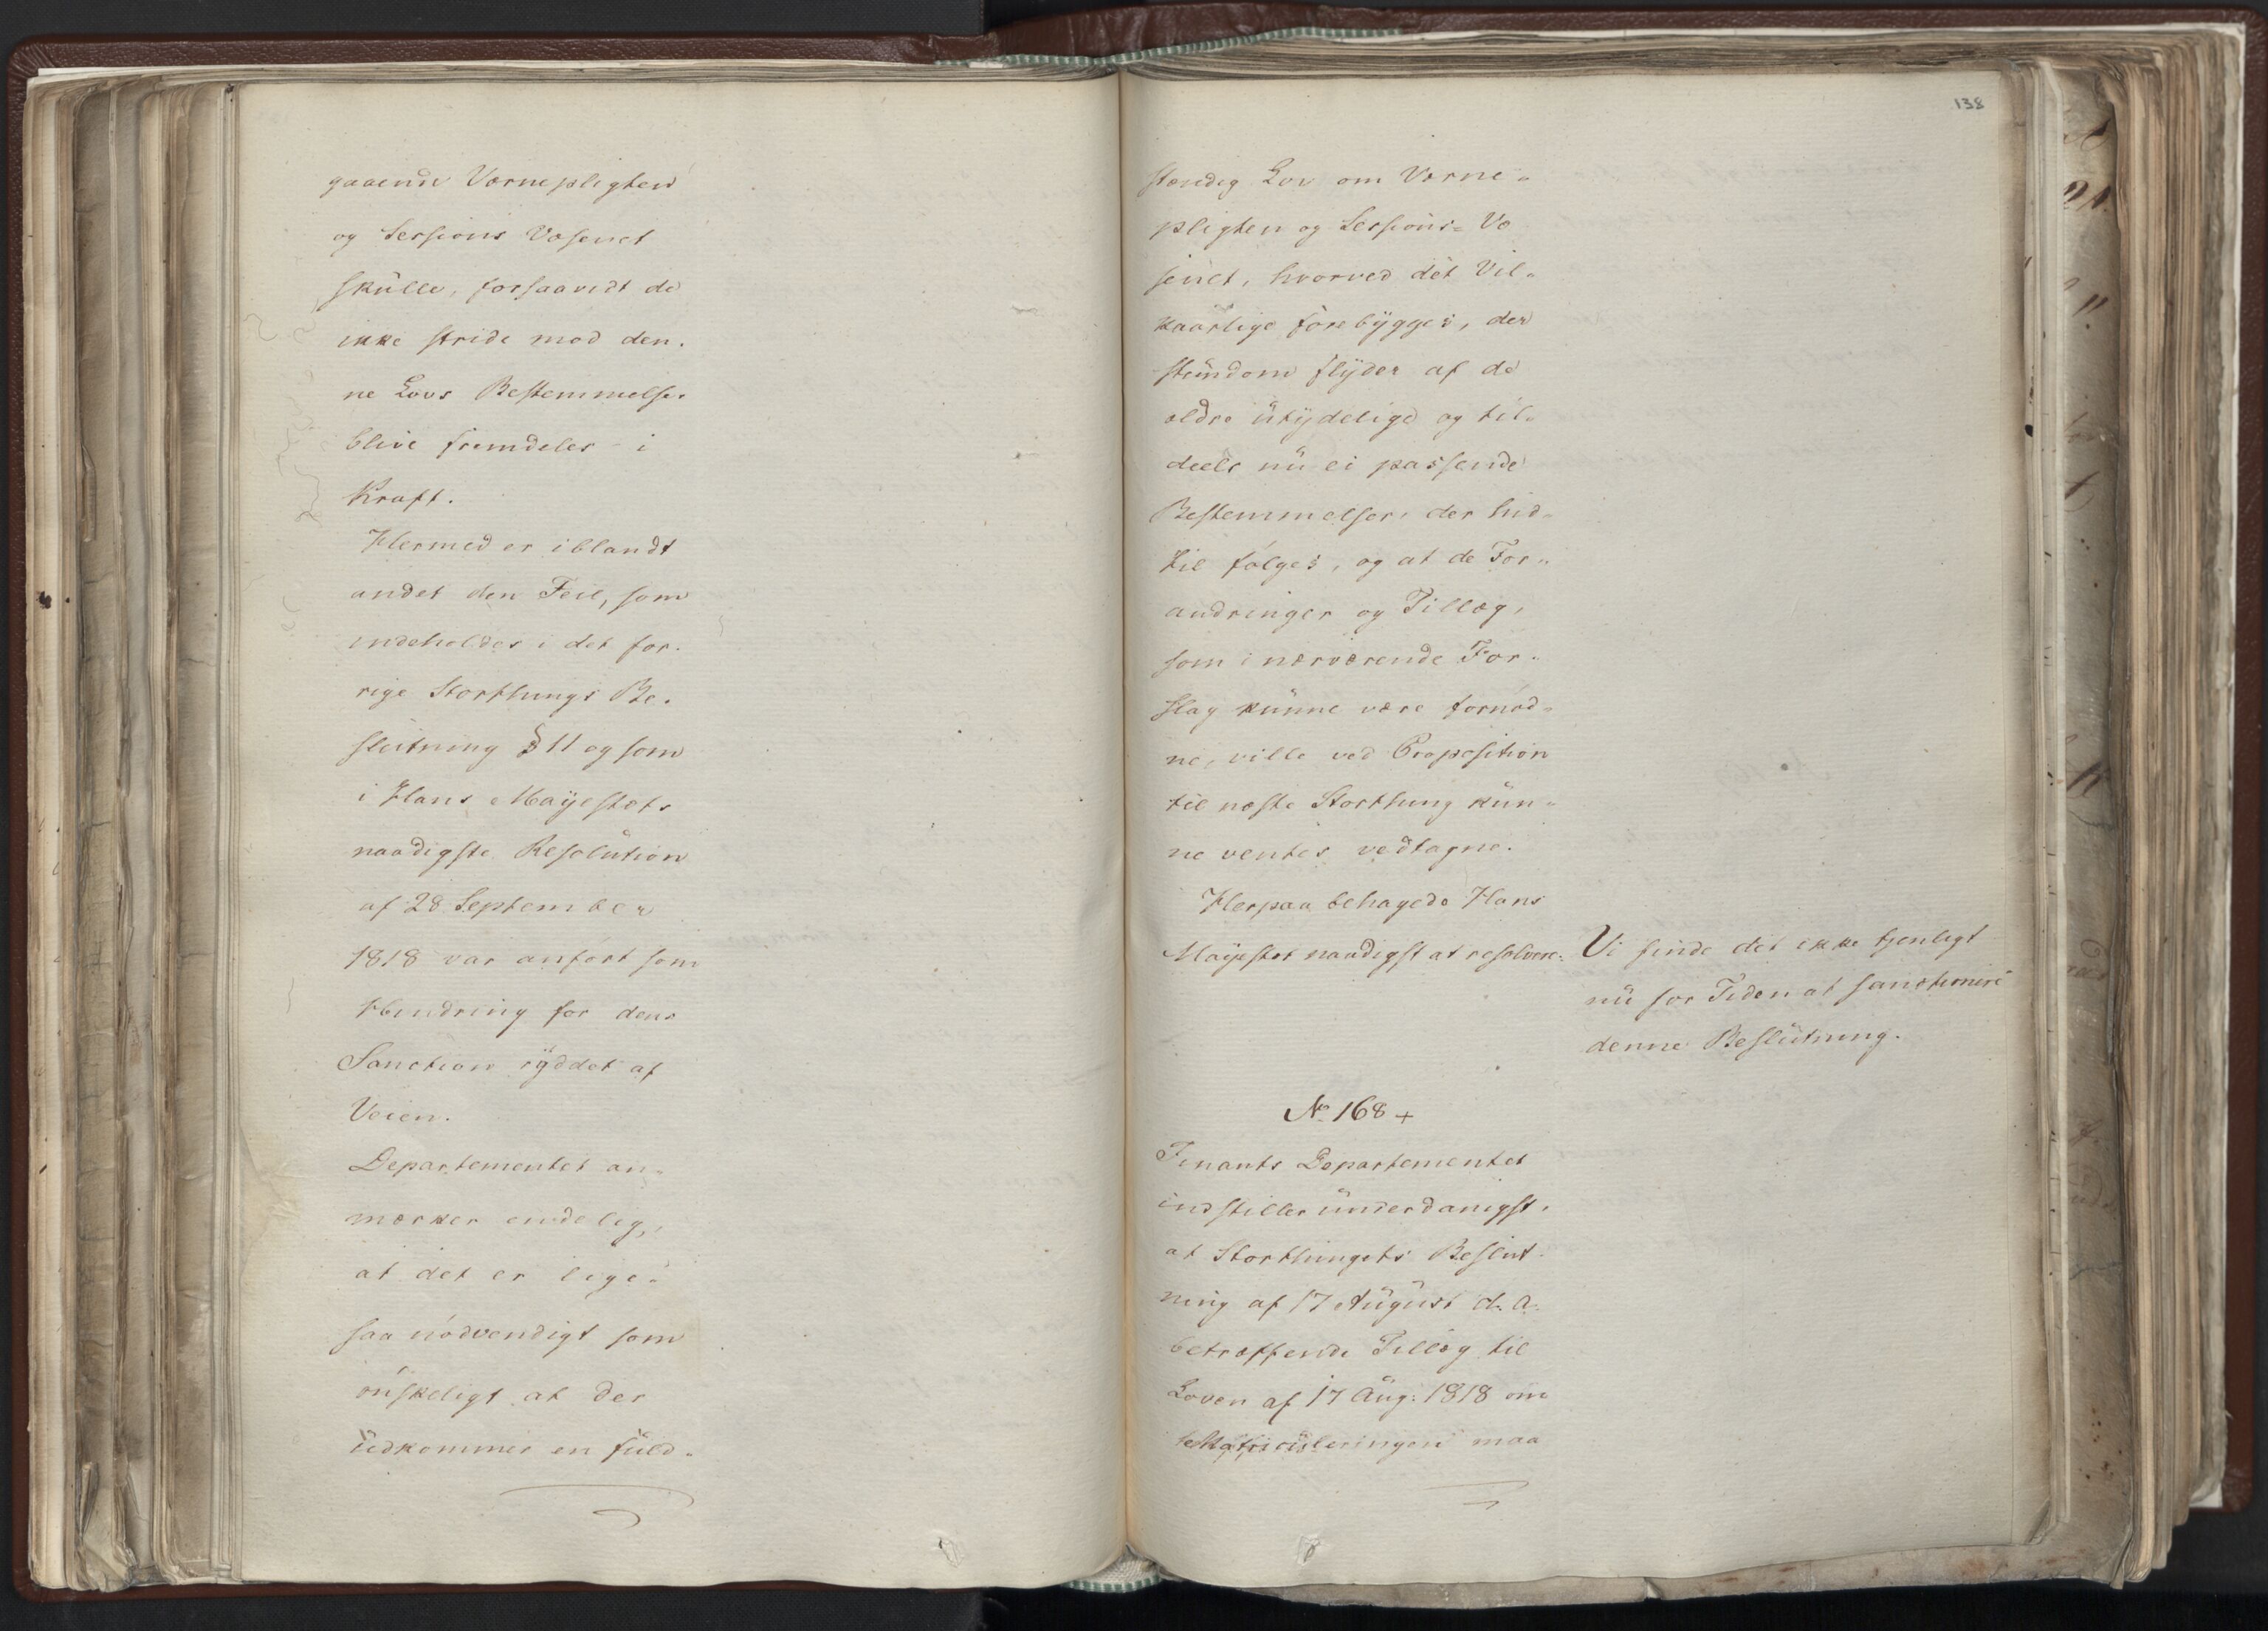 gaaende Værnepligten
og Sessions Væsenet
skulle, forsaavidt de
ikke stride mod den-
ne Lovs Bestemmelse,
blive fremdeles i
Kraft.
Hermed er iblandt
andet den Feil, som
indeholdes i det for-
rige Storthings Be-
slutning § 11 og som
i Hans Majestæts
naadigste Resolution
af 28 September
1818 var anført som
Hindring for dens
Sanction ryddet af
Veien.
Departementet an-
mærker endelig,
at det er lige-
saa nødvendigt som
ønskeligt at der
udkommer en fuld-
138
stændig Lov om Værne-
pligten og Sessions-Væ
senet, hvorved det Vil-
kaarlige forebygges, der
stundom flyder af de
ældre utydelige og til-
deels nu ei passende
Bestemmelser, der hid-
til følges, og at de For-
andringer og Tillæg,
som i nærværende For-
slag kunne være fornød-
ne, ville ved Proposition
til næste Storthing kun-
ne ventes vedtagne.
Herpaa behagede Hans
Majestet naadigst at resolvere:
Vi finde det ikke tjenligt
nu for Tiden at sanctionere
denne Beslutning.
No 168 +
Finants Departementet
indstiller underdanigst,
at Storthingets Beslut-
ning af 17 August d. A.
betræffende Tillæg til
Loven af 17 Aug: 1818 om
Matriculeringen maa